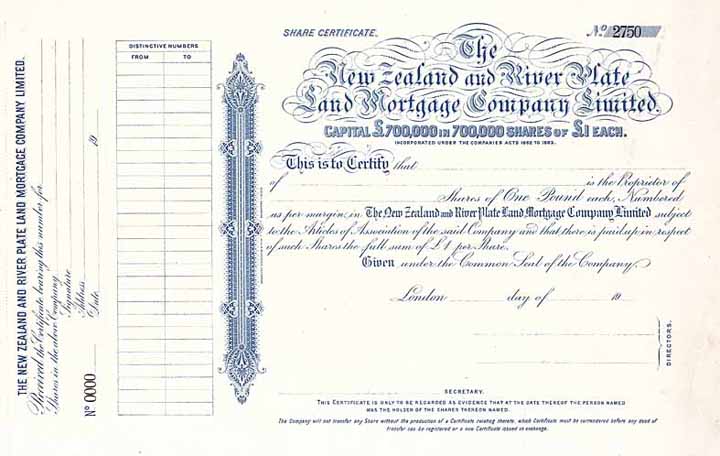 THE NEW ZEALAND AND RIVER PLATE LAND MORTGAGE COMPANY LIMITED.
Received the Certificate bearing this number for
Shares in the above Company.
Signature
Address
Date 19
No 0000
DISTINCTIVE NUMBERS
FROM TO
SHARE CERTIFICATE.
No 2750
The
New Zealand and River Plate
Land Mortgage Company Limited.
CAPITAL £700,000 IN 700,000 SHARES OF £1 EACH.
INCORPORATED UNDER THE COMPANIES ACTS 1862 TO 1883.
This is to Certify that
of is the Proprietor of
Shares of One Pound each, Numbered
as per margin, in The New Zealand and River Plate Land Mortgage Company Limited subject
to the Articles of Association of the said Company and that there is paid up in respect
of such Shares the full sum of £1 per Share.
Given under the Common Seal of the Company,
London day of 19
DIRECTORS.
SECRETARY.
THIS CERTIFICATE IS ONLY TO BE REGARDED AS EVIDENCE THAT AT THE DATE THEREOF THE PERSON NAMED
WAS THE HOLDER OF THE SHARES THEREON NAMED.
The Company will not transfer any Share without the production of a Certificate relating thereto, which Certificate must be surrendered before any deed of
transfer can be registered or a new Certificate issued in exchange.